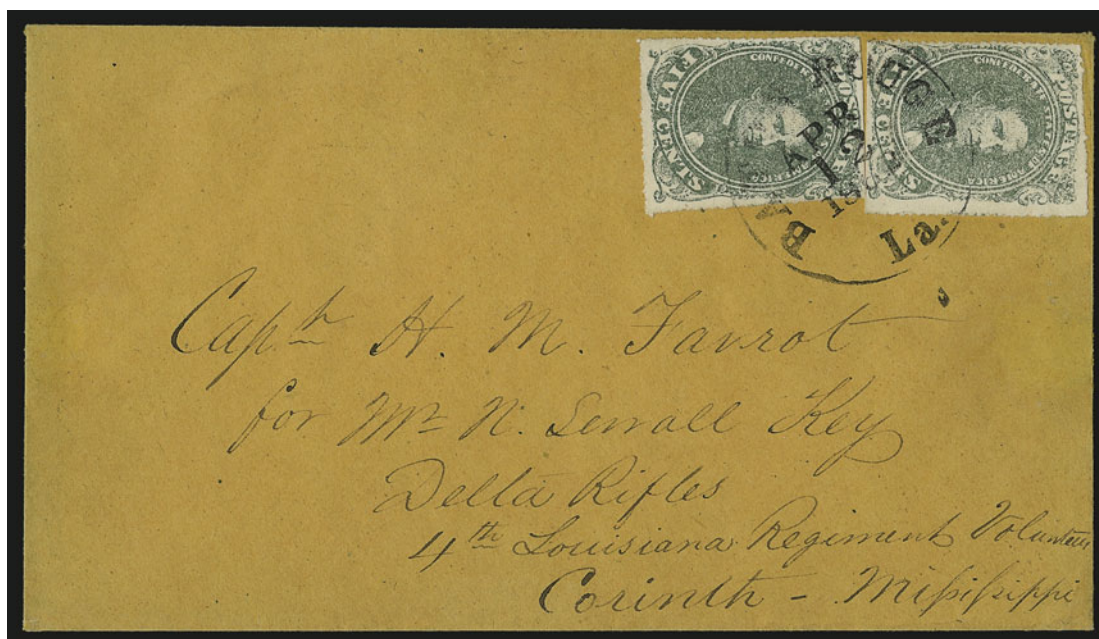 CONFEDERATE STATES OF AMERICA
POSTAGE
FIVE CENTS
CONFEDERATE STATES OF AMERICA
POSTAGE
FIVE CENTS
BA ROUGE La.
APR
12
18
Captn H. M. Favrot
for Mr N. Sewall Key
Delta Rifles
4th Louisiana Regiment Volunteers
Corinth - Missisippi